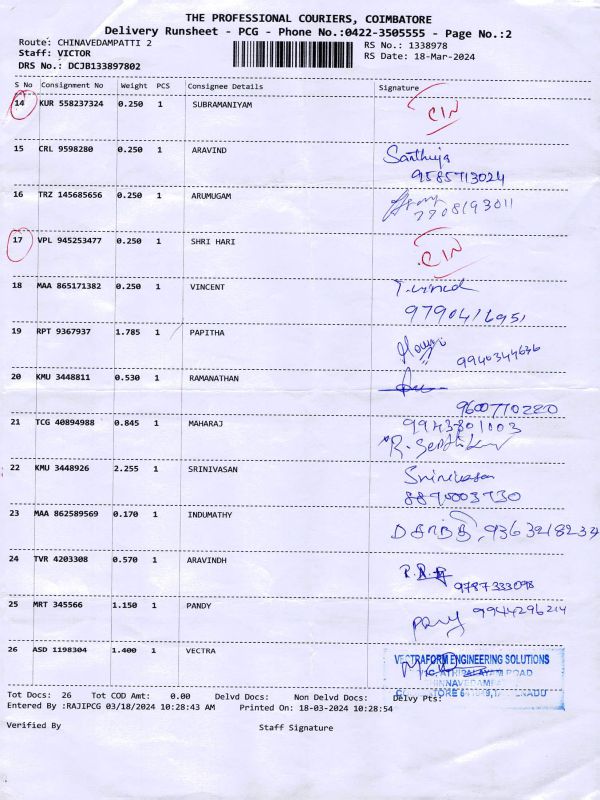 THE PROFESSIONAL COURIERS, COIMBATORE
Delivery Runsheet - PCG - Phone No.:0422-3505555 - Page No.:2
Route: CHINAVEDAMPATTI 2 RS No.: 1338978
Staff: VICTOR RS Date: 18-Mar-2024
DRS No.: DCJB133897802
S No Consignment No Weight PCS Consignee Details Signature
14 KUR 558237324 0.250 1 SUBRAMANIYAM CIN
15 CRL 9598280 0.250 1 ARAVIND Santhiya
9585713024
16 TRZ 145685656 0.250 1 ARUMUGAM
7708193011
17 VPL 945253477 0.250 1 SHRI HARI CIN
18 MAA 865171382 0.250 1 VINCENT
9790416951
19 RPT 9367937 1.785 1 PAPITHA
9940344636
20 KMU 3448811 0.530 1 RAMANATHAN
9600770220
21 TCG 40894988 0.845 1 MAHARAJ 9943801003
22 KMU 3448926 2.255 1 SRINIVASAN Srinivasan
8890003730
23 MAA 862589569 0.170 1 INDUMATHY 9363218233
24 TVR 4203308 0.570 1 ARAVINDH
9787333098
25 MRT 345566 1.150 1 PANDY 9944296214
26 ASD 1198304 1.400 1 VECTRA
VECTRAFORM ENGINEERING SOLUTIONS
ROAD
Tot Docs: 26 Tot COD Amt: 0.00 Delvd Docs: Non Delvd Docs: Delvy Pts:
Entered By :RAJIPCG 03/18/2024 10:28:43 AM Printed On: 18-03-2024 10:28:54
Verified By Staff Signature